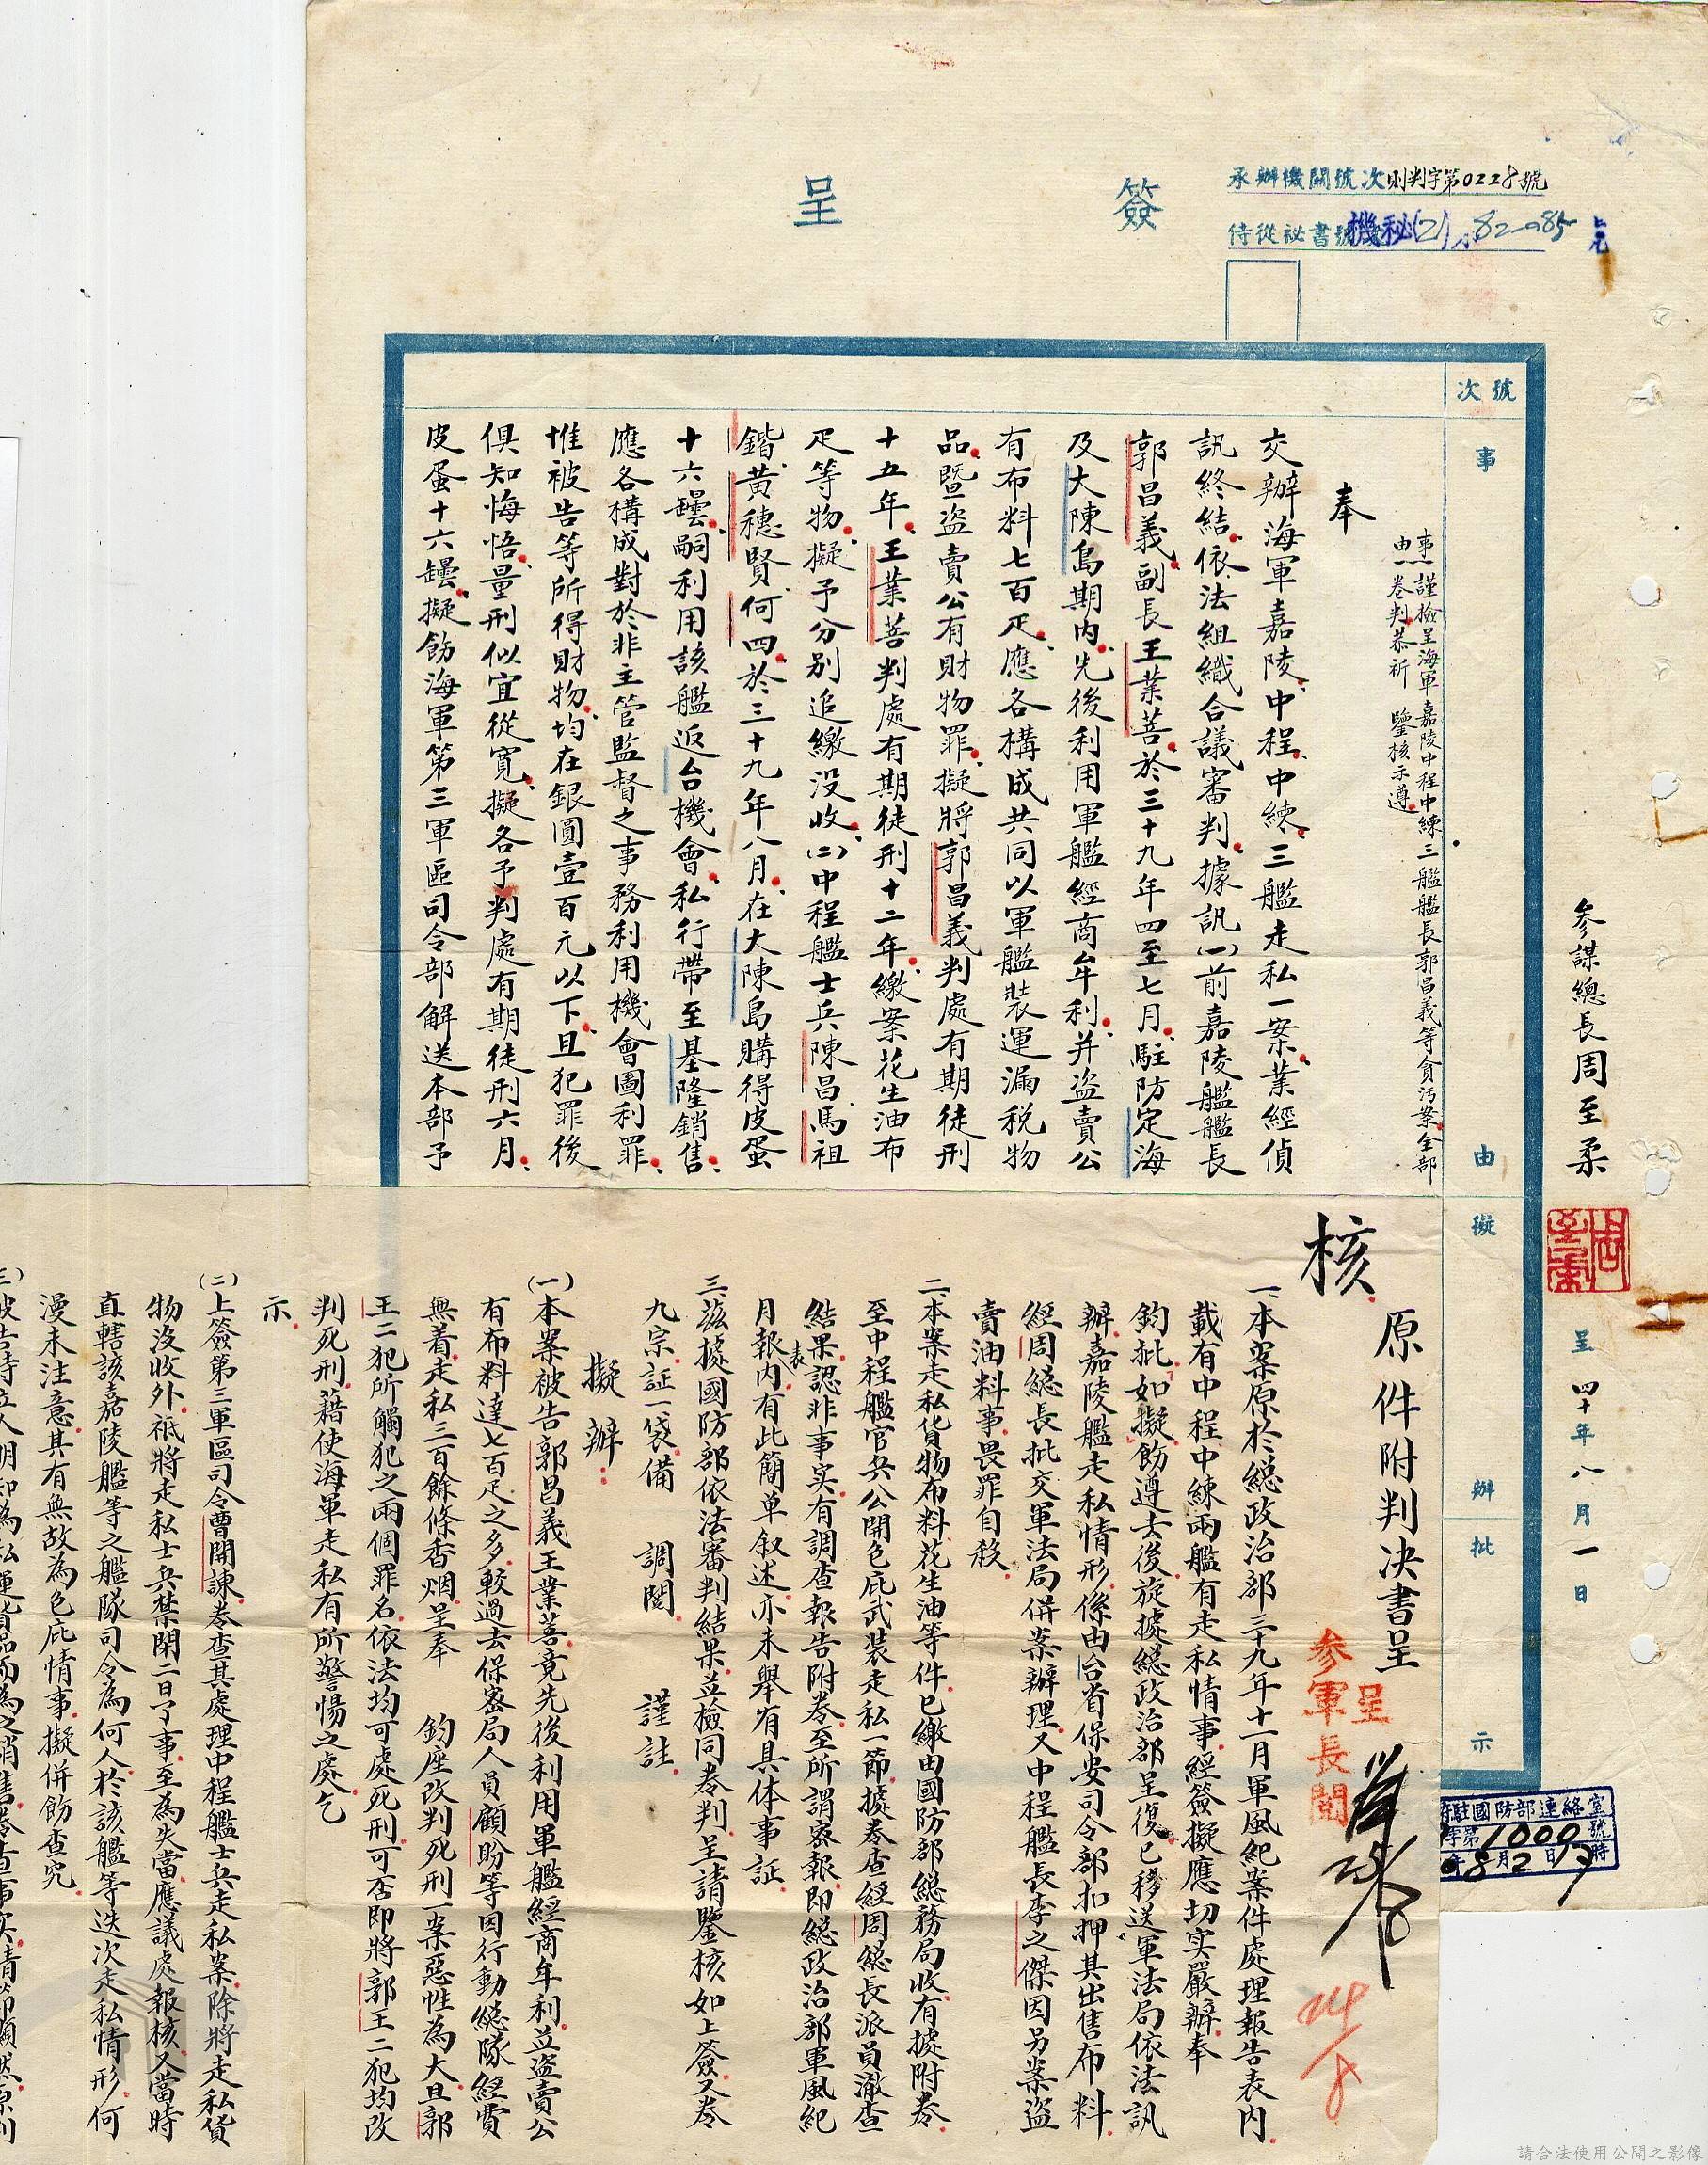 簽呈
承辦機關號次則判字第0228號
侍從祕書號機秘(乙)
號次
事由
擬辦
批示
參謀總長周至柔
呈 四十年八月一日
事由 謹檢呈海軍嘉陵中程中練三艦艦長郭昌義等貪污案全部
卷判恭祈 鑒核示遵
奉
交辦海軍嘉陵中程中練三艦走私一案業經偵
訊終結依法組織合議審判據訊(一)前嘉陵艦艦長
郭昌義副長王業菩於三十九年四至七月駐防定海
及大陳島期內先後利用軍艦經商牟利并盜賣公
有布料七百疋應各構成共同以軍艦裝運漏稅物
品暨盜賣公有財物罪擬將郭昌義判處有期徒刑
十五年王業菩判處有期徒刑十二年繳案花生油布
疋等物擬予分別追繳沒收(二)中程艦士兵陳昌馬祖
鍇黃穗賢何四於三十九年八月在大陳島購得皮蛋
十六罎嗣利用該艦返台機會私行帶至基隆銷售
應各構成對於非主管監督之事務利用機會圖利罪
惟被告等所得財物均在銀圓壹百元以下且犯罪後
俱知悔悟量刑似宜從寬擬各予判處有期徒刑六月
皮蛋十六罎擬飭海軍第三軍區司令部解送本部予
核
原件附判決書呈
呈參軍長閱
駐國防部連絡室
字第1000號
年8月2日 時
一、本案原於總政治部三十九年十一月軍風紀案件處理報告表內
載有中程中練兩艦有走私情事經簽擬應切实嚴辦奉
鈞批如擬飭遵去後旋據總政治部呈復已移送軍法局依法訊
辦嘉陵艦走私情形係由台省保安司令部扣押其出售布料
經周總長批交軍法局併案辦理又中程艦長李之傑因另案盜
賣油料事畏罪自殺
二、本案走私貨物布料花生油等件已繳由國防部總務局收有據附卷
至中程艦官兵公開包庇武裝走私一節據卷查經周總長派員澈查
結果認非事实有調查報告附卷至所謂密報即總政治部軍風紀
月報表內有此簡单叙述亦未舉有具体事証
三、茲據國防部依法審判結果並檢同卷判呈請鑒核如上簽又卷
九宗証一袋備 調閱 謹註
擬辦：
(一)本案被告郭昌義王業菩竟先後利用軍艦經商牟利並盜賣公
有布料達七百疋之多較過去保密局人員顧盼等因行動總隊經費
無着走私三百餘條香烟呈奉 鈞座改判死刑一案惡性為大且郭
王二犯所觸犯之兩個罪名依法均可處死刑可否即將郭王二犯均改
判死刑藉使海軍走私有所警惕之處乞
示
(二)上簽第三軍區司令曹開諫卷查其處理中程艦士兵走私案除將走私貨
物沒收外祇將走私士兵禁閉二日了事至為失當應議處報核又當時
直轄該嘉陵艦等之艦隊司令為何人於該艦等迭次走私情形何
漫未注意其有無故為包庇情事擬併飭查究
請合法使用公開之影像